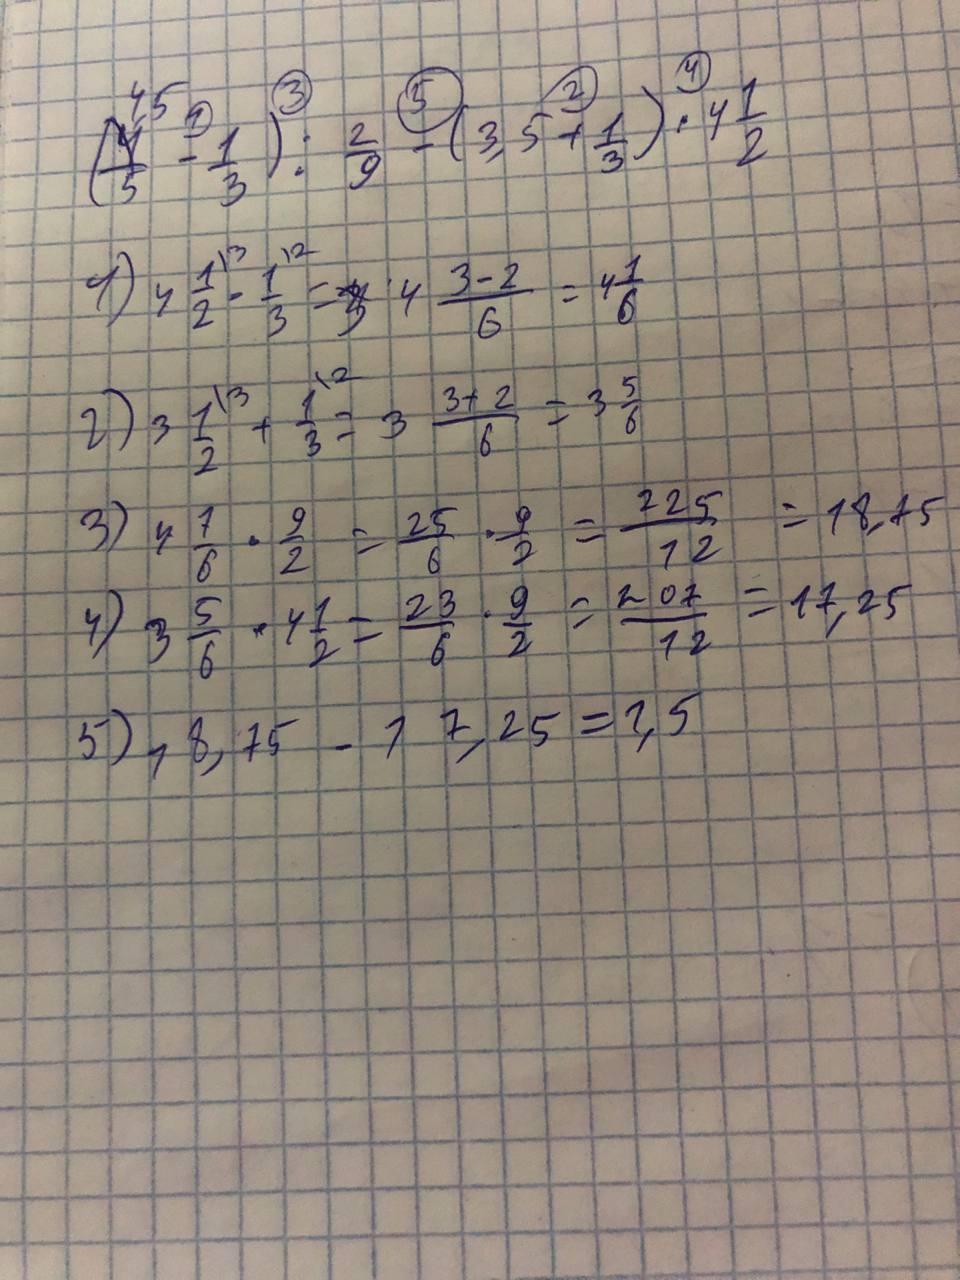 (4,5 - 1/3) : 2/9 - (3,5 + 1/3) · 4 1/2
1) 4 1/2 \3 - 1/3 \2 = 4 (3-2)/6 = 4 1/6
2) 3 1/2 \3 + 1/3 \2 = 3 (3+2)/6 = 3 5/6
3) 4 1/6 · 9/2 = 25/6 · 9/2 = 225/12 = 18,75
4) 3 5/6 · 4 1/2 = 23/6 · 9/2 = 207/12 = 17,25
5) 18,75 - 17,25 = 1,5